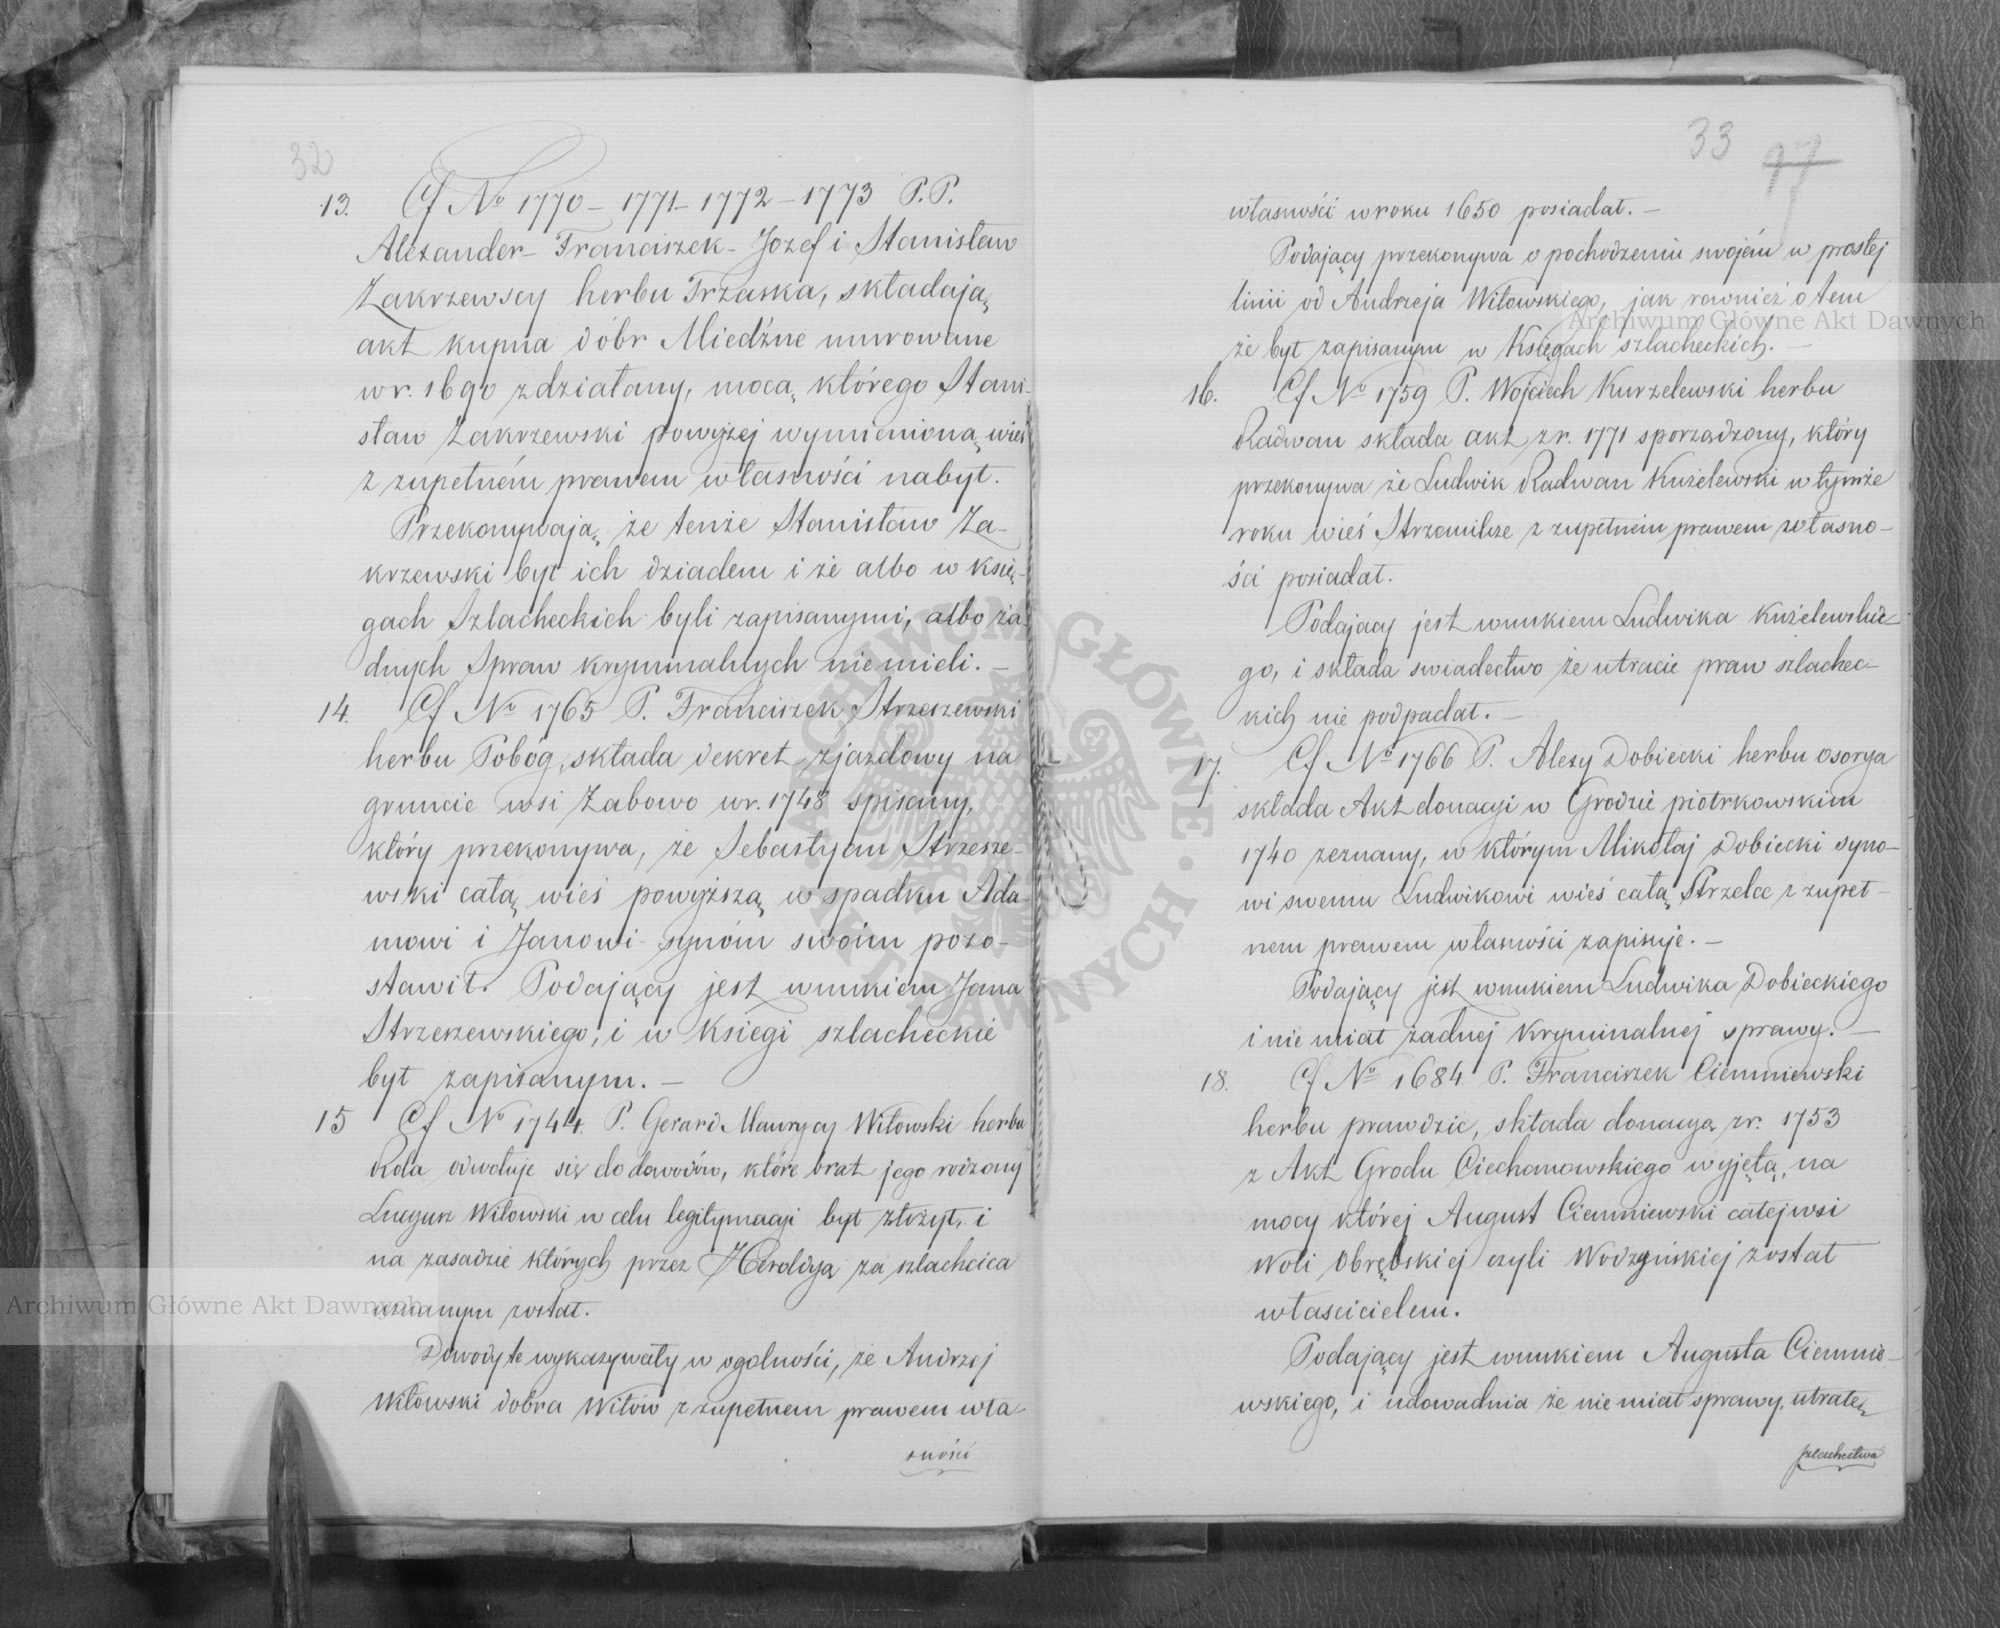 32
13. Cf No 1770 – 1771 – 1772 – 1773 P.P.
Alexander – Franciszek – Jozef i Stanisław
Zakrzewscy herbu Trzaska, składają
akt kupna dóbr Miedźne murowane
w r. 1690 zdziałany, mocą którego Stani-
sław Zakrzewski powyżej wymienioną wieś
z zupełném prawem własności nabył.
Przekonywają że tenże Stanisław Za-
krzewski był ich dziadem i że albo w księ-
gach Szlacheckich byli zapisanymi, albo ża-
dnych Spraw kryminalnych nie mieli. –
14. Cf No 1765 P. Franciszek Strzeszewski
herbu Pobóg, składa dekret zjazdowy na
gruncie wsi Żabowo w r. 1748 spisany,
który przekonywa, że Sebastyan Strzesze-
wski całą wieś powyższą w spadku Ada-
mowi i Janowi synóm swoim pozo-
stawił. Podający jest wnukiem Jana
Strzeszewskiego, i w Ksiegi szlacheckie
był zapisanym. –
15 Cf No 1744. P. Gerard Maurycy Witowski herbu
Rola odwołuje się do dowodów, które brat jego rodzony
Lucyan Witowski w celu legitymacyi był złożył, i
na zasadzie których przez Heroldyą za szlachcica
uznanym został.
Dowody te wykazywały w ogolności, że Andrzej
Witowski dobra Witów z zupełnem prawem wła-
sności
33
17
własności w roku 1650 posiadał. –
Podający przekonywa o pochodzeniu swojém w prostej
linii od Andrzeja Witowskiego, jak rownież o tem
że był zapisanym w Księgach szlacheckich. –
16. Cf No 1759 P. Wojciech Kurzelewski herbu
Radwan składa akt z r. 1771 sporządzony, który
przekonywa że Ludwik Radwan Kużelewski w tymże
roku wieś Strzemilsze z zupełnem prawem własno-
ści posiadał.
Podający jest wnukiem Ludwika Kużelewskie-
go, i składa swiadectwo że utracie praw szlachec-
kich nie podpadał. –
17. Cf No 1766 P. Alexy Dobiecki herbu osorya
składa Akt donacyi w Grodzie piotrkowskim
1740 zeznany, w którym Mikołaj Dobiecki syno-
wi swemu Ludwikowi wieś całą Strzelce z zupeł-
nem prawem własności zapisuje. –
Podający jest wnukiem Ludwika Dobieckiego
i nie miał żadnej kryminalnej sprawy. –
18. Cf No 1684 P. Franciszek Ciemniewski
herbu prawdzic, składa donacyą z r. 1753
z Akt Grodu Ciechanowskiego wyjętą, na
mocy której August Ciemniewski całej wsi
Woli Obrębskiej czyli Wodzyńskiej został
własciicielem.
Podający jest wnukiem Augusta Ciemnie-
wskiego, i udowadnia że nie miał sprawy utratę
szlachectwa
Archiwum Główne Akt Dawnych
Archiwum Główne Akt Dawnych
ARCHIWUM GŁÓWNE AKT DAWNYCH